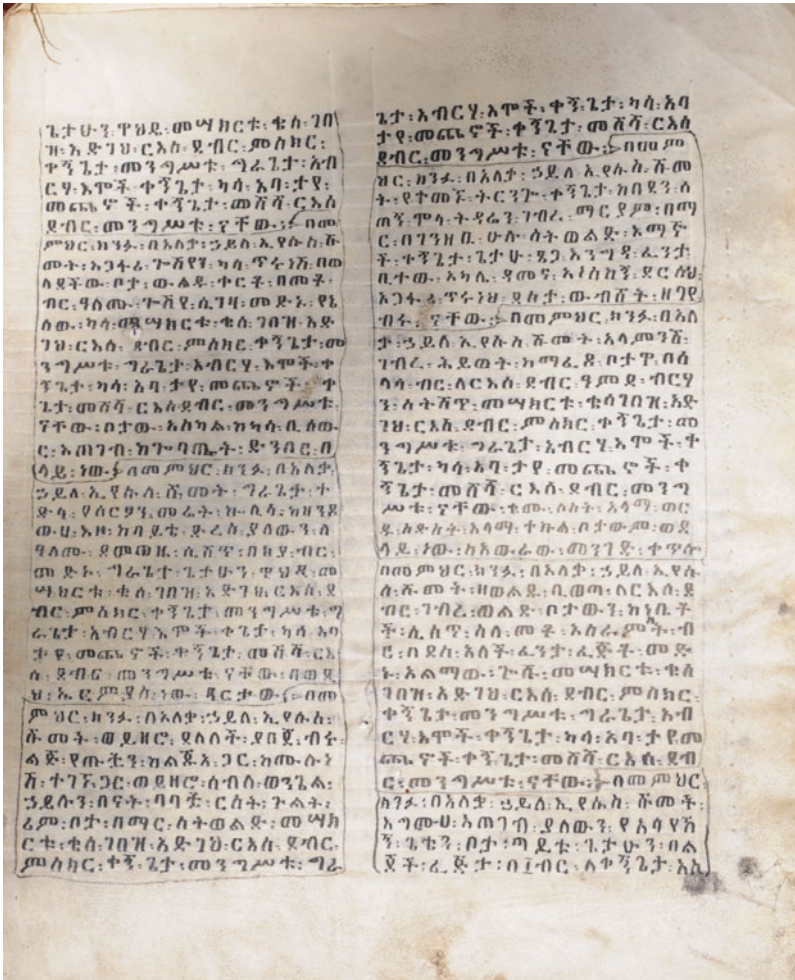 ጌታሁን፡ ዋህዴ፡ መሣክርቱ፡ ቄስ፡ ገበ
ዝ፡ አድገህ፡ ርእሰ፡ ደብር፡ ምስክር፡
ቀኝጌታ፡ መንግሥቱ፡ ግራጌታ፡ አብ
ርሃ፡ እሞች፡ ቀኝጌታ፡ ካሳ፡ አባ፡ ታየ፡
መጨኖች፡ ቀኝጌታ፡ መሸሻ፡ ርእሰ
ደብር፡ መንግሥቱ፡ ናቸው፡ በመ
ምህር፡ ክንፉ፡ በአለቃ፡ ኃይለ፡ ኢየሱስ፡ ሹ
መት፡ አጋፋሪ፡ ጐሽየን፡ ካሳ፡ ጥሩነሽ፡ በወ
ላደችው፡ ቦታ፡ ውልዱ፡ ተርቶ፡ በመቶ፡
ብር፡ ዓለሙ፡ ጐሽየ፡ ሲገዛ፡ መድኑ፡ የኔ
ሰው፡ ካሳ፡ መሣክርቱ፡ ቄስ፡ ገበዝ፡ አድ
ገህ፡ ርእሰ፡ ደብር፡ ምስክር፡ ቀኝጌታ፡ መ
ንግሥቱ፡ ግራጌታ፡ አብርሃ፡ እሞች፡ ቀ
ኝጌታ፡ ካሳ፡ አባ፡ ታየ፡ መጨኖች፡ ቀኝ
ጌታ፡ መሸሻ፡ ርእሰ ደብር፡ መንግሥቱ፡
ናቸው፡ ቦታው፡ አስካል፡ ከካሳ፡ ቢሰው፡
ር፡ አጠገብ፡ ከጐባጤት፡ ድንበር፡ በ
ላይ፡ ነው፡ በመምህር፡ ክንፉ፡ በአለቃ፡
ኃይለ፡ ኢየሱስ፡ ሹመት፡ ግራጌታ፡ ተ
ድላ፡ የሰርፃን፡ መሬት፡
ዓለሙ፡ ደመወዜ፡ ሲሸጥ፡ በ ብር፡
መድኑ፡ ግራጌታ፡ ጌታሁን፡ ዋህዴ፡ መ
ሣክርቱ፡ ቄስ፡ ገበዝ፡ አድገህ፡ ርእሰ፡ ደ
ብር፡ ምስክር፡ ቀኝጌታ፡ መንግሥቱ፡ ግ
ራጌታ፡ አብርሃ፡ እሞች፡ ቀኝጌታ፡ ካሳ፡ አባ
ታየ፡ መጨኖች፡ ቀኝጌታ፡ መሸሻ፡ ርእ
ሰ፡ ደብር፡ መንግሥቱ፡ ናቸው፡
ነው፡ በመ
ምህር፡ ክንፉ፡ በአለቃ፡ ኃይለ፡ ኢየሱስ፡
ሹመት፡ ወይዘሮ፡ ደስለች፡ ያበጀ፡ ብሩ፡
ልጅ፡
ሽ፡ ወይዘሮ፡ ሰብለ፡ ወንጌል፡
ኃይሉን፡ በናት፡ በባቷ፡ ርስት፡ ጉልት፡
ሪም፡ ቦታ፡ በማር፡ ስትወልድ፡ መሣክ
ርቱ፡ ቄስ፡ ገበዝ፡ አድገህ፡ ርእሰ፡ ደብር፡
ምስክር፡ ቀኝ፡ ጌታ፡ መንግሥቱ፡ ግራ
ጌታ፡ አብርሃ፡ እሞች፡ ቀኝ፡ ጌታ፡ ካሳ፡ አባ
ታየ፡ መጨኖች፡ ቀኝጌታ፡ መሸሻ፡ ርእሰ
ደብር፡ መንግሥቱ፡ ናቸው፡ በመም
ህር፡ ክንፉ፡ በአለቃ፡ ኃይለ፡ ኢየሱስ፡ ሹመ
ት፡ የተመኙ፡ ትርንጐ፡ ቀኝጌታ፡ ከበደን፡ ስ
ጠኝ፡ ሞላ፡ ገብረ፡ ማርያም፡ በማ
ር፡ በገንዘቧ፡ ሁሉ፡ ስትወልድ፡ እማኞ
ች፡ ቀኝጌታ፡ ጌታሁ፡ ጸጋ፡ እንግዳ፡ ፈንታ፡
ቢተው፡ አካሌ፡ ዳመና፡ ደርሰህ፡
አጋፋሪ፡ ጥሩነህ፡ ደስታ፡ ውብሸት፡ ዘገየ፡
ብሩ፡ ናቸው፡ በመምህር፡ ክንፉ፡ በአለ
ቃ፡ ኃይለ፡ ኢየሱስ፡ ሹመት፡ አላምንሽ፡
ገብረ፡ ሕይወት፡
ብር፡ ለርእሰ፡ ደብር፡ ዓምደ፡ ብርሃ
ን፡ ስትሸጥ፡ መሣክርቱ፡ ቄስ ገበዝ፡ አድ
ገህ፡ ርእሰ፡ ደብር፡ ምስክር፡ ቀኝጌታ፡ መ
ንግሥቱ፡ ግራጌታ፡ አብርሃ፡ እሞች፡ ቀ
ኝጌታ፡ ካሳ፡ አባ፡ ታየ፡ መጨኖች፡ ቀ
ኝጌታ፡ መሸሻ፡ ርእሰ፡ ደብር፡ መንግ
ሥቱ፡ ናቸው፡ አላማ፡ ወር
አላማ፡ ተኩል፡ ቦታውም፡ ወደ
ላይ፡ ነው፡ ከአውራው፡ መንገድ፡ ቀጥሎ
በመምህር፡ ክንፉ፡ በአለቃ፡ ኃይለ፡ ኢየሱ
ስ፡ ሹመት፡ ዘወልደ፡ ቢወጣ፡ ለርእሰ፡ ደ
ብር፡ ገብረ፡ ወልድ፡ ቦታውን፡
ሲሸጥ፡ ስለ፡ መቶ፡ አስራምት፡ ብ
ር፡ በደስ፡ አለች፡ ፈንታ፡ ፈጅቶ፡ መድ
ኑ፡ አልማው፡ ጐሹ፡ መሣክርቱ፡ ቄስ
ገበዝ፡ አድገህ፡ ርእሰ፡ ደብር፡ ምስክር፡
ቀኝጌታ፡ መንግሥቱ፡ ግራጌታ፡ አብ
ርሃ፡ እሞች፡ ቀኝጌታ፡ ካሳ፡ አባ፡ ታየ መ
ጨኖች፡ ቀኝጌታ፡ መሸሻ፡ ርእሰ፡ ደብ
ር፡ መንግሥቱ፡ ናቸው፡ በመምህር፡
ክንፉ፡ በአለቃ፡ ኃይለ፡ ኢየሱስ፡ ሹመት፡
አጠገብ፡ ያለውን፡
ቦታ፡ ጌታሁን፡ በል
ጆች፡ ብር፡ ለቀኝጌታ፡